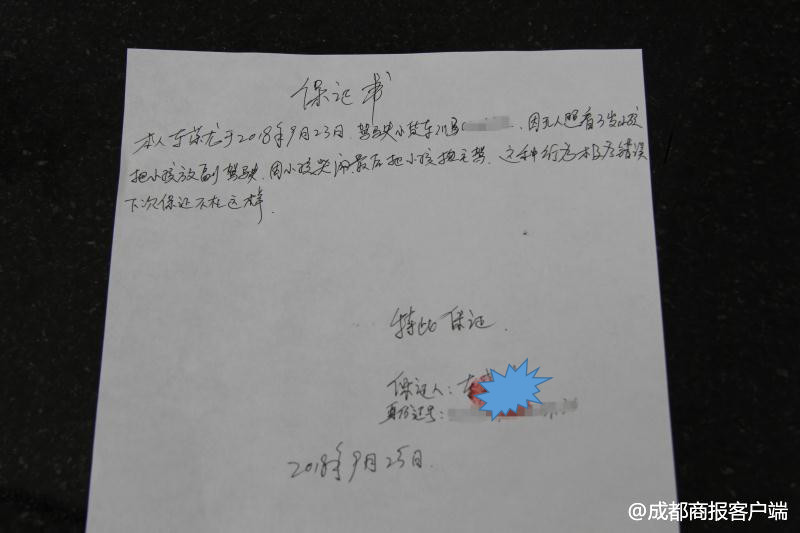 保证书
本人 于2018年9月23日 驾驶小货车川 因无人照看3岁小孩
把小孩放副驾驶.因小孩哭闹最后把小孩抱起驾.这种行为极度错误
下次保证不在这样.
特此保证.
保证人:
身份证号:
2018年9月25日.
@成都商报客户端